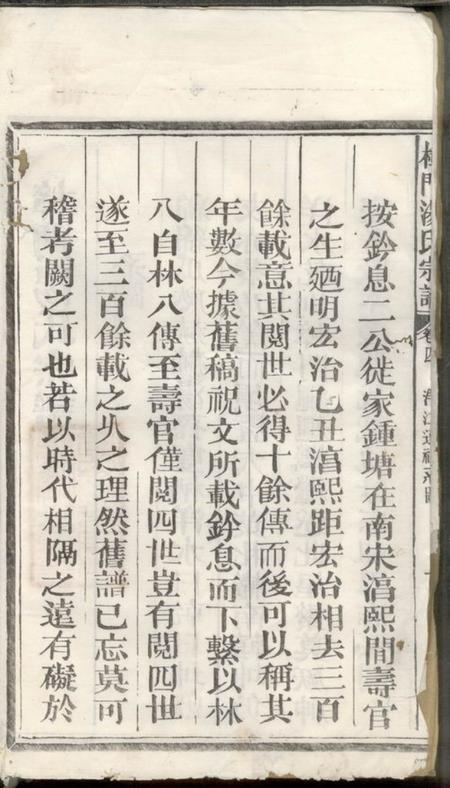 門 氏宗譜 卷四
按鈐息二公徙家鍾塘在南宋湻熙間壽官
之生廼明宏治乙丑湻熙距宏治相去三百
餘載意其閱世必得十餘傳而後可以稱其
年數今據舊稿祝文所載鈐息而下繫以林
八自林八傳至壽官僅閱四世豈有閱四世
遂至三百餘載之乆之理然舊譜已忘莫可
稽考闕之可也若以時代相隔之遠有礙於